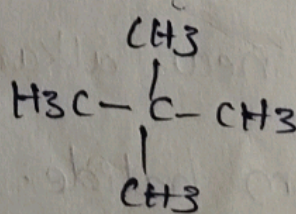 CH3
H3C-C-CH3
CH3